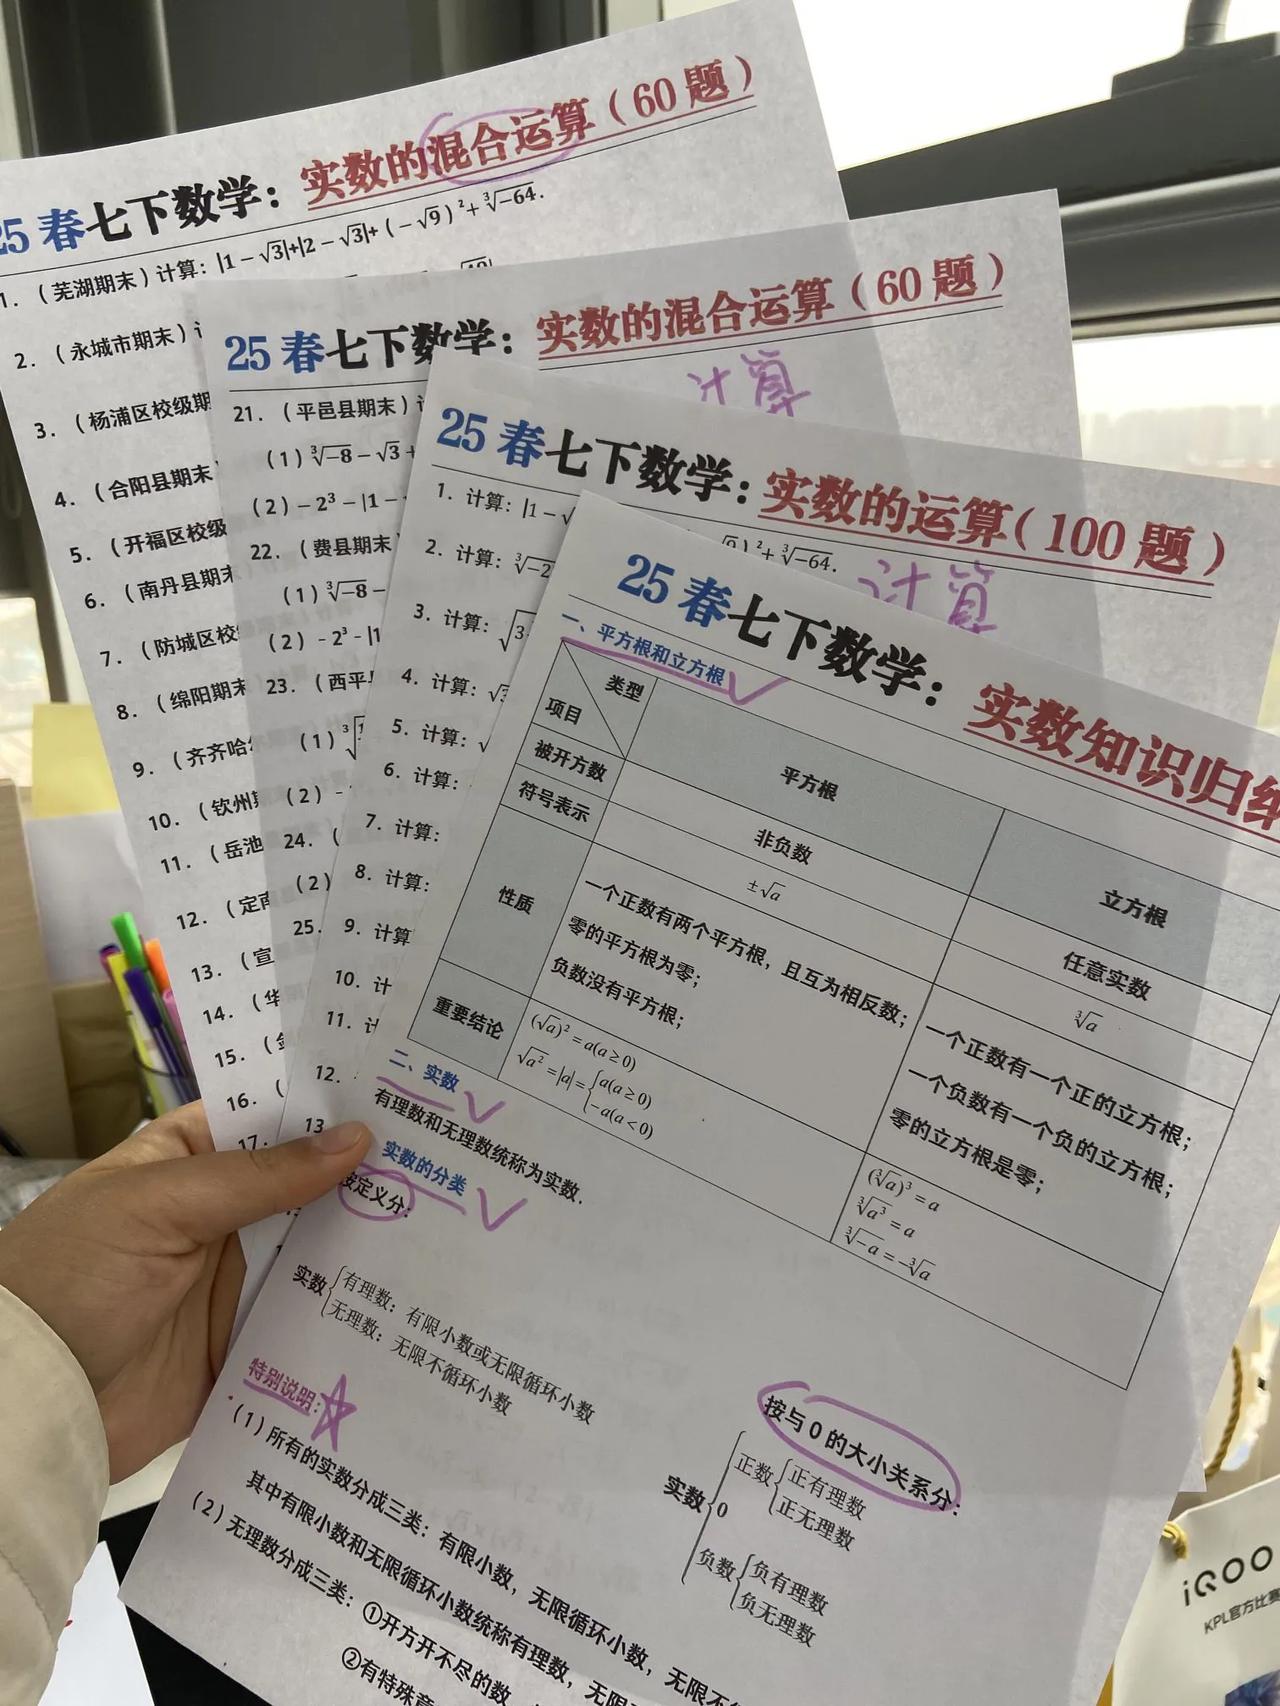 25春七下数学：实数的混合运算（60题）
1.（芜湖期末）计算：|1－√3|+|2－√3|+（－√9）²+∛−64.
2.（永城市期末）
3.（杨浦区校级期
4.（合阳县期末
5.（开福区校级
6.（南丹县期末
7.（防城区校
8.（绵阳期末
9.（齐齐哈
10.（钦州
11.（岳池
12.（定南
13.（宣
14.（华
15.（
16.（
17.
25春七下数学：实数的混合运算（60题）
计算
21.（平邑县期末）
（1）∛−8－√3＋
（2）－2³－|1－
22.（费县期末
（1）∛−8－
（2）－2³－|1
23.（西平
（1）∛
（2）－
24.（
（2）
25.
25春七下数学：实数的运算（100题）
计算
1. 计算：|1－√
）²+∛−64.
2. 计算：∛−2
3. 计算：√3
4. 计算：√
5. 计算：√
6. 计算：
7. 计算：
8. 计算：
9. 计算
10. 计
11. 计
12.
13
25春七下数学：实数知识归
一、平方根和立方根
类型
项目
平方根
立方根
被开方数
非负数
任意实数
符号表示
±√a
∛a
性质
一个正数有两个平方根，且互为相反数；
零的平方根为零；
负数没有平方根；
一个正数有一个正的立方根；
一个负数有一个负的立方根；
零的立方根是零；
重要结论
(√a)²=a(a≥0)
√a²=|a|={a(a≥0)
−a(a<0)
(∛a)³=a
∛a³=a
∛−a=−∛a
二、实数
有理数和无理数统称为实数.
实数的分类
按定义分：
实数{有理数：有限小数或无限循环小数
无理数：无限不循环小数
按与0的大小关系分：
实数{正数{正有理数
正无理数
0
负数{负有理数
负无理数
特别说明：
（1）所有的实数分成三类：有限小数，无限循环小数，无限不
其中有限小数和无限循环小数统称有理数，无限
（2）无理数分成三类：①开方开不尽的数
②有特殊意
iQOO
KPL官方比赛